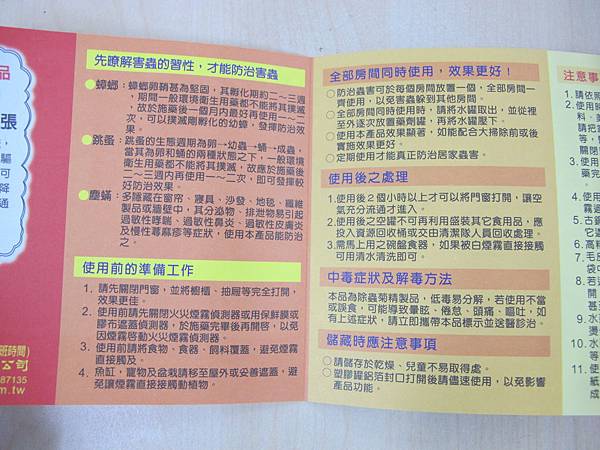 品
張
先瞭解害蟲的習性，才能防治害蟲
蟑螂：蟑螂卵鞘甚為堅固，其孵化期約二～三週
，期間一般環境衛生用藥都不能將其撲滅
，故於施藥後一個月內最好再使用一～二
次，可以撲滅剛孵化的幼蟑，發揮防治效
果。
跳蚤：跳蚤的生態週期為卵→幼蟲→蛹→成蟲，
當其為卵和蛹的兩種狀態之下，一般環境
衛生用藥都不能將其撲滅，故應於施藥後
二～三週內再使用一～二次，即可發揮較
好防治效果。
塵蟎：多睡藏在窗帘、寢具、沙發、地毯、纖維
製品或牆壁中，其分泌物、排泄物易引起
過敏性哮喘、過敏性鼻炎、過敏性皮膚炎
及慢性蕁麻疹等症狀，使用本產品能防治
之。
使用前的準備工作
1. 請先關閉門窗，並將櫥櫃、抽屜等完全打開，
效果更佳。
2. 使用前請先關閉火災煙霧偵測器或用保鮮膜或
膠布遮蓋偵測器，於施藥完畢後再開啓，以免
因煙霧啓動火災煙霧偵測器。
3. 使用前請將食物、食器、飼料覆蓋，避免煙霧
直接觸及。
4. 魚缸，寵物及盆栽請移至屋外或妥善遮蓋，避
免讓煙霧直接接觸動植物。
全部房間同時使用，效果更好！
○防治蟲害可於每個房間放置一個，全部房間一
齊使用，以免害蟲躲到其他房間。
○全部房間同時使用時，請將水罐取出，並從裡
至外逐次放置藥劑罐，再將水罐壓下。
○使用本產品效果顯著，如能配合大掃除前或後
實施效果更好。
○定期使用才能真正防治居家蟲害。
使用後之處理
1.使用後２個小時以上才可以將門窗打開，讓空
氣充分流通才進入。
2.使用後之空罐不可再利用盛裝其它食用品，應
投入資源回收桶或交由清潔隊人員回收處理。
3.需馬上用之碗盤食器，如果被白煙霧直接接觸
可用清水清洗即可。
中毒症狀及解毒方法
本品為除蟲菊精製品，低毒易分解，若使用不當
或誤食，可能導致暈眩、倦怠、頭痛、嘔吐，如
有上述症狀，請立即攜帶本品標示並送醫診治。
儲藏時應注意事項
○請儲存於乾燥、兒童不易取得處。
○塑膠罐鋁箔封口打開後請儘速使用，以免影響
產品功能。
注意事